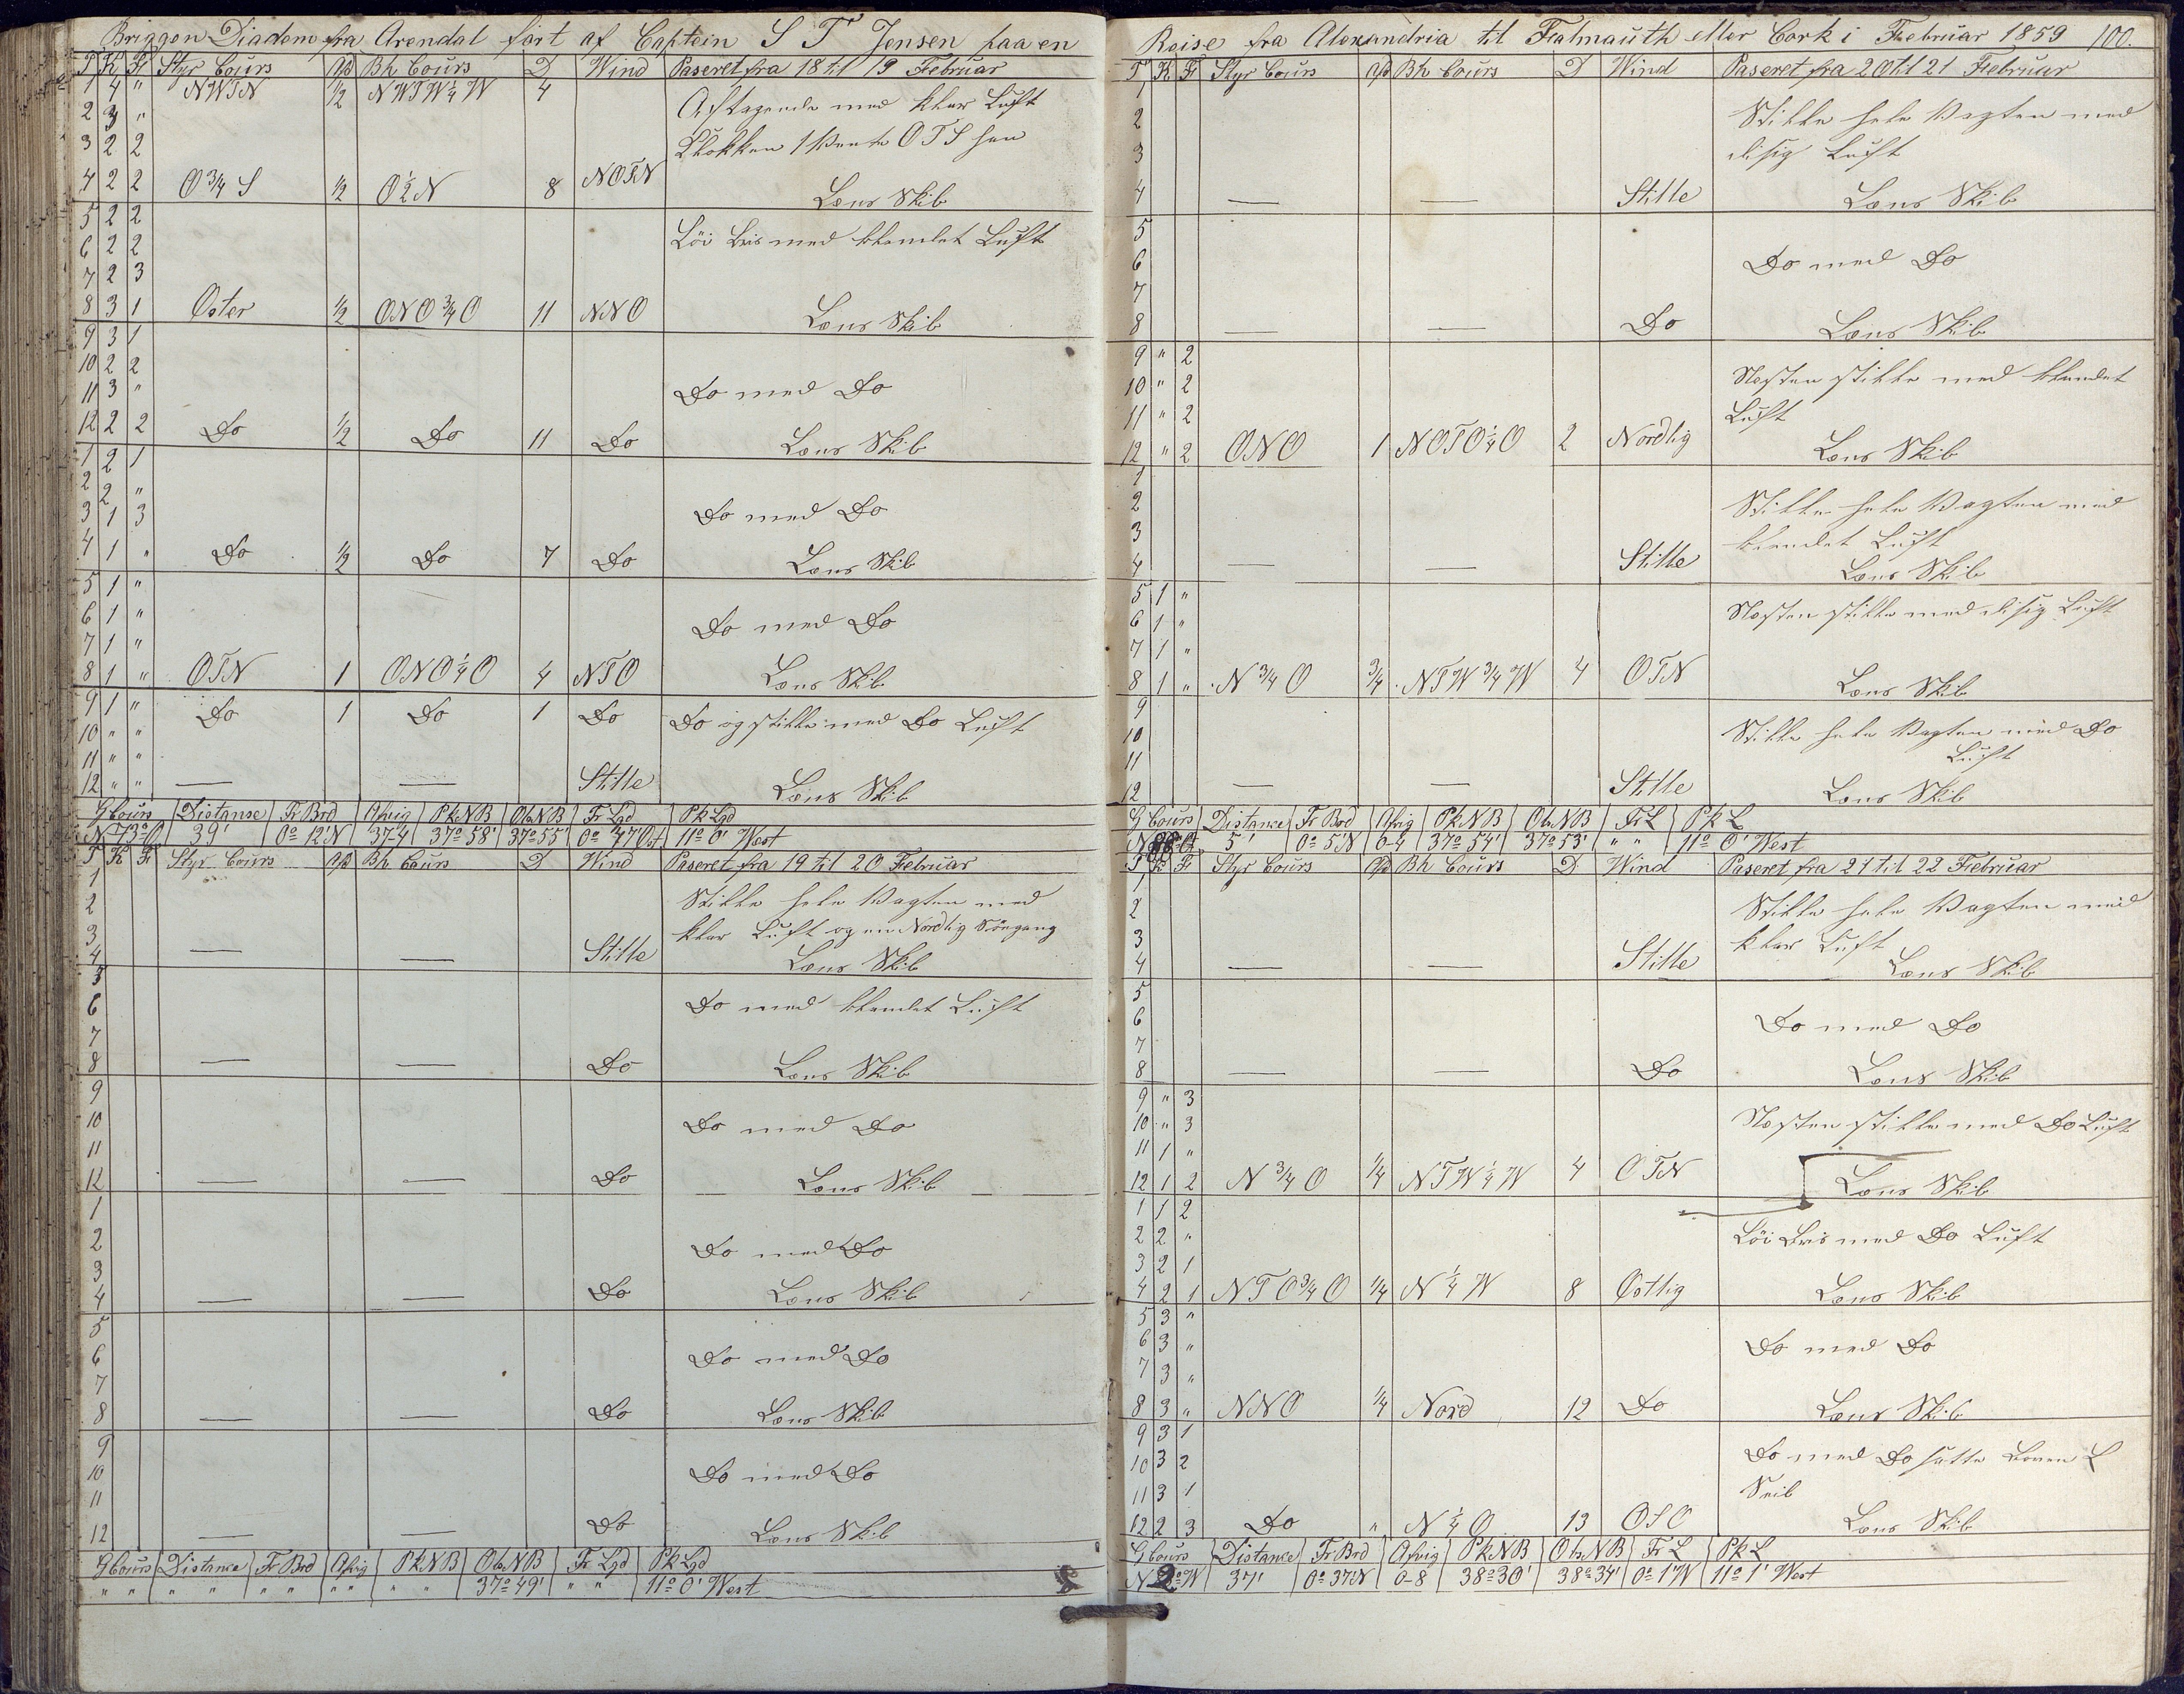 Briggen Diadem fra Arendal ført af Captein S T Jensen paa en
T K F Styr Cours Afd Bh Cours D Wind Paseret fra 18 til 19 Februar
1 4 " NWTN 1/2 NWTW 1/4 W 4
Aftagende med klar Luft
2 3 "
3 2 2 Klokken 1 Vente OTS hen
4 2 2 O 3/4 S 1/2 O 1/2 N 8 NOTN Læns Skib
5 2 2 Löi Bris med blendet Luft
6 2 2
7 2 3
8 3 1 Öster 1/2 ONO 3/4 O 11 NNO Læns Skib
9 3 1
10 2 2
11 3 " Do med Do
12 2 2 Do 1/2 Do 11 Do Læns Skib
1 2 1
2 2 "
3 1 3 Do med Do
4 1 " Do 1/2 Do 7 Do Læns Skib
5 1 "
6 1 " Do med Do
7 1 "
8 1 " OTN 1 ONO 1/4 O 4 NTO Læns Skib
9 1 " Do 1 Do 1 Do Do og stille med Do Luft
10 " "
11 " "
12 " " — — Stille Læns Skib
G Cours Distanse Fr Brd Afvig Pk NB Obs NB Fr Lgd Pk Lgd
N 73° O 39' 0° 12' N 37-4 37° 58' 37° 55' 0° 47' Ost 11° 0' West
T K F Styr Cours Afd Bh Cours D Wind Paseret fra 19 til 20 Februar
1
2 Stille hele Vagten med
3 klar Luft og en Nordlig Söegang
4 — — Stille Læns Skib
5
6 Do med blendet Luft
7
8 — — Do Læns Skib
9
10 Do med Do
11
12 — — Do Læns Skib
1
2 Do med Do
3
4 — — Do Læns Skib
5
6 Do med Do
7
8 — — Do Læns Skib
9
10 Do med Do
11
12 — — Do Læns Skib
G Cours Distance Fr Brd Afvig Pk NB Obs NB Fr Lgd Pk Lgd
" " " " " " " " " " 37° 49' " " 11° 0' West
Reise fra Alexandria til Fralmauth eller Cork i Februar 1859 100.
T K F Styr Cours Afd Bh Cours D Wind Paseret fra 20 til 21 Februar
1
2 Stille hele Vagten med
3 disig Luft
4 — — Stille Læns Skib
5
6 Do med Do
7
8 — — Do Læns Skib
9 " 2
10 " 2 Næsten stille med blendet
11 " 2 Luft
12 " 2 ONO 1 NOTO 1/4 O 2 Nordlig Læns Skib
1
2 Stille hele Vagten med
3 blendet Luft
4 — — Stille Læns Skib
5 1 "
6 1 " Næsten stille med disig Luft
7 1 "
8 1 " N 3/4 O 3/4 NTW 3/4 W 4 OTN Læns Skib
9
10 Stille hele Vagten med Do
11 Luft
12 — — Stille Læns Skib
G Cours Distance Fr Brd Afvig Pk NB Obs NB Fr L Pk L
5' 0° 5' N 0-4 37° 54' 37° 53' " " 11° 0' West
T K F Styr Cours Afd Bh Cours D Wind Paseret fra 21 til 22 Februar
1
2 Stille hele Vagten med
3 klar Luft
4 — — Stille Læns Skib
5
6 Do med Do
7
8 — — Do Læns Skib
9 " 3
10 " 3 Næsten stille med Do Luft
11 1 "
12 1 2 N 3/4 O 1/4 NTW 1/4 W 4 OTN Læns Skib
1 1 2
2 2 " Löi Bris med Do Luft
3 2 1
4 2 1 NTO 3/4 O 1/4 N 1/4 W 8 Östlig Læns Skib
5 3 "
6 3 " Do med Do
7 3 "
8 3 " NNO 1/4 Nord 12 Do Læns Skib
9 3 1
10 3 2 Do med Do satte Boven L
11 3 1 Seil
12 2 3 Do " N 1/4 O 13 OSO Læns Skib
G Cours Distance Fr Brd Afvig Pk NB Obs NB Fr L Pk L
N 2° W 37' 0° 37' N 0-8 38° 30' 38° 34' 0° 1' W 11° 1' West